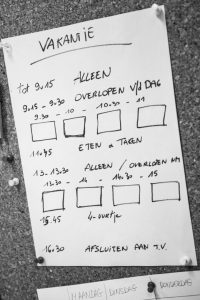 VAKANTIE
tot 9u15 ALLEEN
9u15 - 9u30 OVERLOPEN V/D DAG
9.30 - 10 - 10.30 - 11
11u45 ETEN & TAKEN
13 - 13.30 ALLEEN / OVERLOPEN
13.30 - 14 - 14.30 - 15
15.45 4-uurtje
16u30 AFSLUITEN AAN T.V.
MAANDAG DINSDAG DONDERDAG